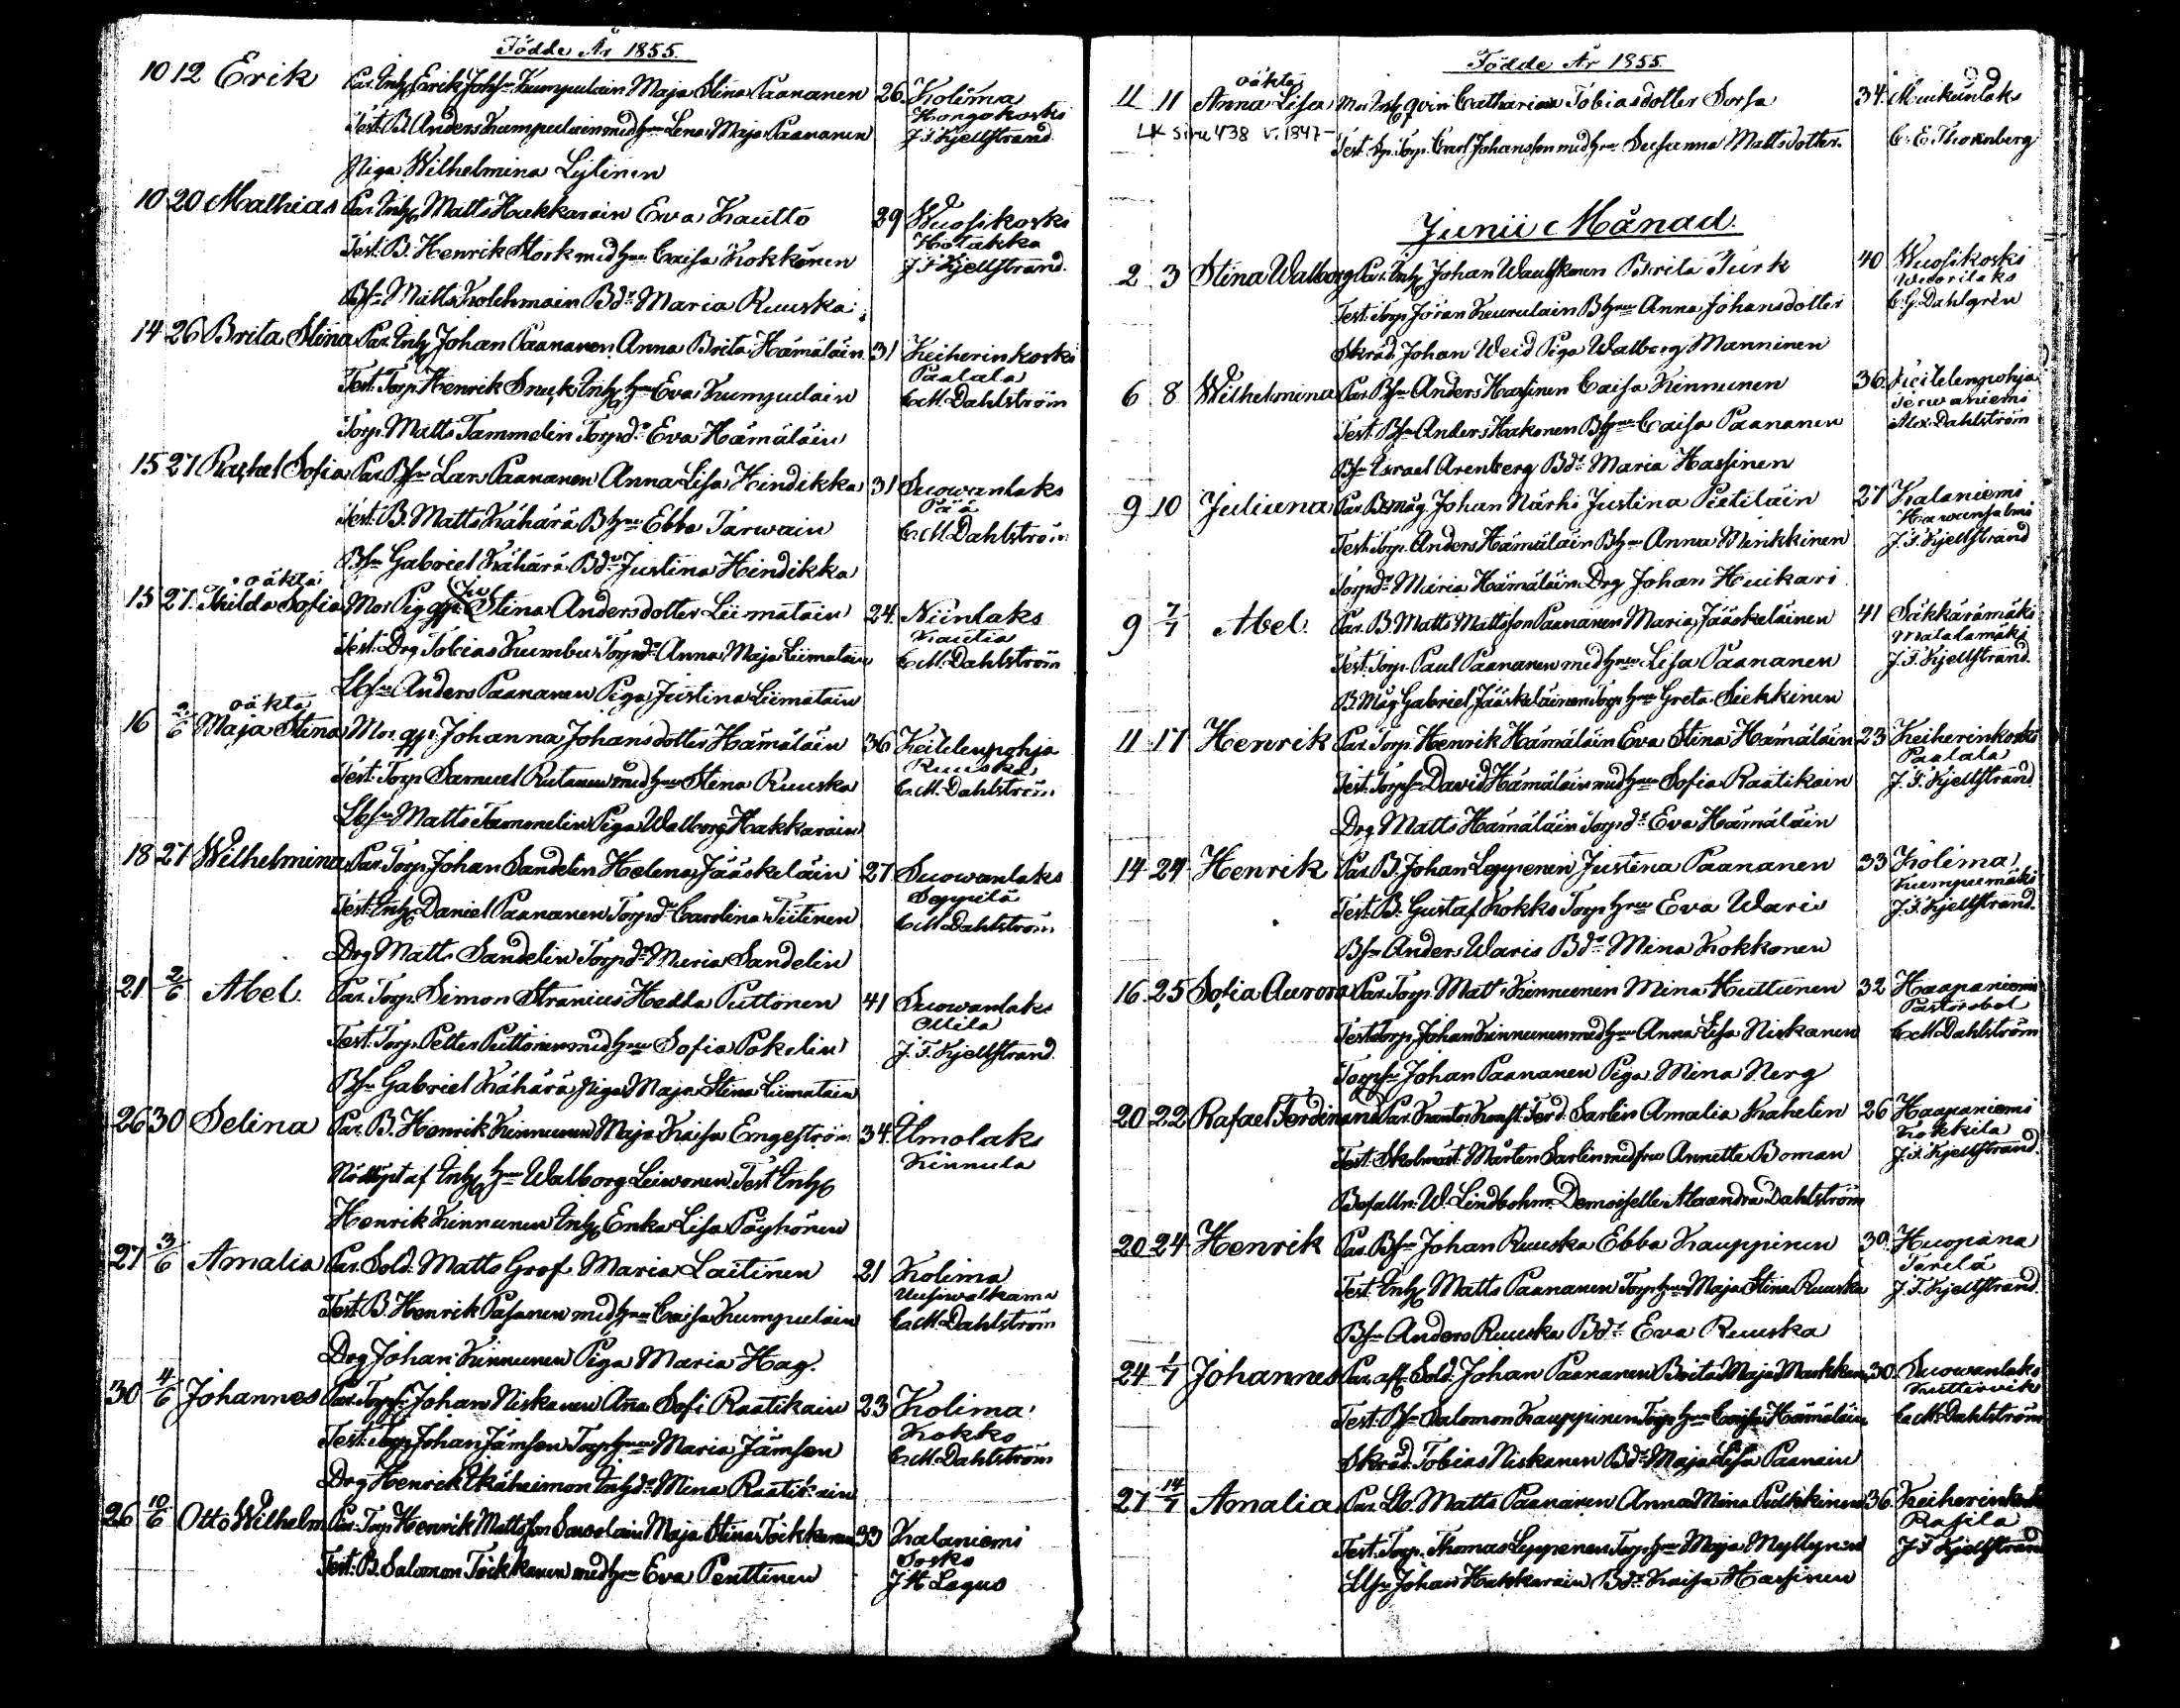 Födde År 1855.
10 12 Erik Par. Inh. Erik Johsson Kumpulain Maja Stina Paananen 26. Kolima
Kongokoski
Test. B. Anders Kumpulain med hru Lena Maja Paananen J. F. Kjellstrand.
Piga Wilhelmina Lytinen
10 20 Mathias Par. Inh. Matts Hakkarain Eva Kautto 29 Wuosikoski
Hotakka
Test. B. Henrik Stork med hru Caisa Kokkonen J. F. Kjellstrand.
Bsn Matts Kolehmain Bdr Maria Ruuska
14 26 Brita Stina Par. Inh. Johan Paananen Anna Brita Hämäläin 31 Keiherinkoski
Paalala
Test. Torp. Henrik Snuck Inh. hru Eva Kumpulain C. M. Dahlström
Torp. Matts Tammelin Torpdr Eva Hämäläin
15 27 Rachel Sofia Par. Bsn Lars Paananen Anna Lisa Hindikka 31 Suowanlaks
Pää
Test. B. Matts Kähärä B hru Ebba Tarwain C. M. Dahlström
Bsn Gabriel Kähärä Bdr Justina Hindikka
oäkta
15 27. Thilda Sofia Mor Pig Stina Andersdotter Liimatain 24. Niinlaks
Kautia
Test. Drg Tobias Kumbu Torpdr Anna Maja Liimatain C. M. Dahlström
Anders Paananen Piga Justina Liimatain
oäkta
16 2/6 Maja Stina Mor qp. Johanna Johansdotter Hämäläin 36 Keitelenpohja
Ruuska
Test. Torp Samuel Rutanen med hru Stina Ruuska C. M. Dahlström
Matts Tammelin Piga Walborg Hakkarain
18 27 Wilhelmina Par. Torp. Johan Sandelin Helena Jääskeläin 27 Suowanlaks
Seppilä
Test. Inh. Daniel Paananen Torpdr Carolina Tiitinen C. M. Dahlström
Drg Matts Sandelin Torpdr Maria Sandelin
21 2/6 Abel. Par. Torp. Simon Stranius Hedda Puttonen 41 Suowanlaks
Ollila
Test. Torp. Petter Puttonen med hru Sofia Pokelin J. F. Kjellstrand.
Bsn Gabriel Kähärä piga Maja Stina Liimatain
26 30 Selina Par. B. Henrik Kinnunen Maja Kaisa Engeström 34. Ulmolaks
Kinnula
Nöddöpt af Inh. hru Walborg Leiwonen. Test. Inh.
Henrik Kinnunen Inh. Enka Lisa Pöyhönen
27 3/6 Amalia Par. Sold. Matts Grof Maria Laitinen 21 Kolima
Uusiwalkama
Test. B. Henrik Pasanen med hru Caisa Kumpulain C. M. Dahlström
Drg Johan Kinnunen Piga Maria Hag.
30 4/6 Johannes Par. Torpsn Johan Niskanen Anna Sofi Raatikain 23 Kolima
Kokko
Test. Torp Johan Jämsen Torp hru Maria Jämsen C. M. Dahlström
Drg Henrik Ikäheimon Inhdr Mina Raatikain
26 10/6 Otto Wilhelm Par. Torp Henrik Mattsson Sawolain Maja Stina Toikkanen 33 Kalaniemi
Sosko
Test. B. Salomon Toikkanen med hru Eva Penttinen J H Lagus
Födde År 1855.
99
oäkta
11 11 Anna Lisa Mor Inh. qvin Catharina Tobiasdotter Sorsa 34. Muikunlaks
LK sivu 438 v. 1847-
Test. Torp. Carl Johansson med hru Susanna Mattsdotter. C. E. Thornberg
Junii Månad.
2 3 Stina Walborg Par. Inh. Johan Wauhkonen Brita Turk 40 Wuosikoski
Wuorilaks
Test. Torp. Jöran Keurulain B hru Anna Johansdotter C. G. Dahlgrén
Skräd. Johan Weid Piga Walborg Manninen
6 8 Wilhelmina Par. Bsn Anders Hassinen Caisa Kinnunen 36. Keitelenpohja
Terwaniemi
Test. Bsn Anders Hakonen B hru Caisa Paananen Alex. Dahlström
Bsn Israel Arenberg Bdr Maria Hassinen
9 10 Juliana Par. Bmåg. Johan Närhi Justina Pietiläin 27 Kalaniemi
Test. Torp. Anders Hämäläin B hru Anna Minkkinen J. F. Kjellstrand
Torpdr Maria Hämäläin Drg Johan Huikari
9 7/7 Abel. Par. B. Matts Mattsson Paananen Maria Jääskeläinen 41 Säkkärämäki
Matalamäki
Test. Torp. Paul Paananen med hru Lisa Paananen J. F. Kjellstrand.
B. Måg Gabriel Jääskeläinen Torp. hru Greta Siekkinen
11 17 Henrik Par. Torp. Henrik Hämäläin Eva Stina Hämäläin 23 Keiherinkoski
Paalala
Test. Torpsn David Hämäläin med hru Sofia Raatikain J. F. Kjellstrand.
Drg Matts Hämäläin Torpdr Eva Hämäläin
14 24 Henrik Par. B. Johan Leppenen Justina Paananen 33 Kolima
Kumpumäki
Test. B. Gustaf Kokko Torp hru Eva Waris J. F. Kjellstrand.
Bsn Anders Waris Bdr Mina Kokkonen
16 25 Sofia Aurora Par. Torp. Matt. Kinnunen Mina Huttunen 32 Haapaniemi
Pastorsbol
Test. Torp. Johan Kinnunen med hru Anna Lisa Niskanen C. M. Dahlström
Torpsn Johan Paananen Piga Mina Nerg
20 22 Rafael Ferdinand Par. Kantor Konst. Ferd. Sarlin Amalia Kahelin 26 Haapaniemi
Kokkila
Test. Skolmäst. Mårten Sarlin med fru Annette Boman J. F. Kjellstrand.
Befalln. W. Lindbohm Demoiselle Alexandra Dahlström
20 24 Henrik Par. Bsn Johan Ruuska Ebba Kauppinen 30. Huopana
Tarela
Test. Inh. Matts Paananen Torp hru Maja Stina Ruuska J. F. Kjellstrand.
Bsn Anders Ruuska Bdr Eva Ruuska
24 1/7 Johannes Par. afsk. Sold. Johan Paananen Brita Maja Markkan 30. Suowanlaks
Test. Bsn Salomon Kauppinen Torp hru Caisa Hämäläin C. M. Dahlström
Skräd. Tobias Niskanen Bdr Maja Lisa Paanain
27 14/7 Amalia Par. Matts Paananen Anna Mina Pulkkinen 36. Keiherinkoski
Rasila
Test. Torp. Thomas Leppenen Torp hru Maja Myllynen J F Kjellstrand
Johan Hakkarain Bdr Kaisa Hassinen